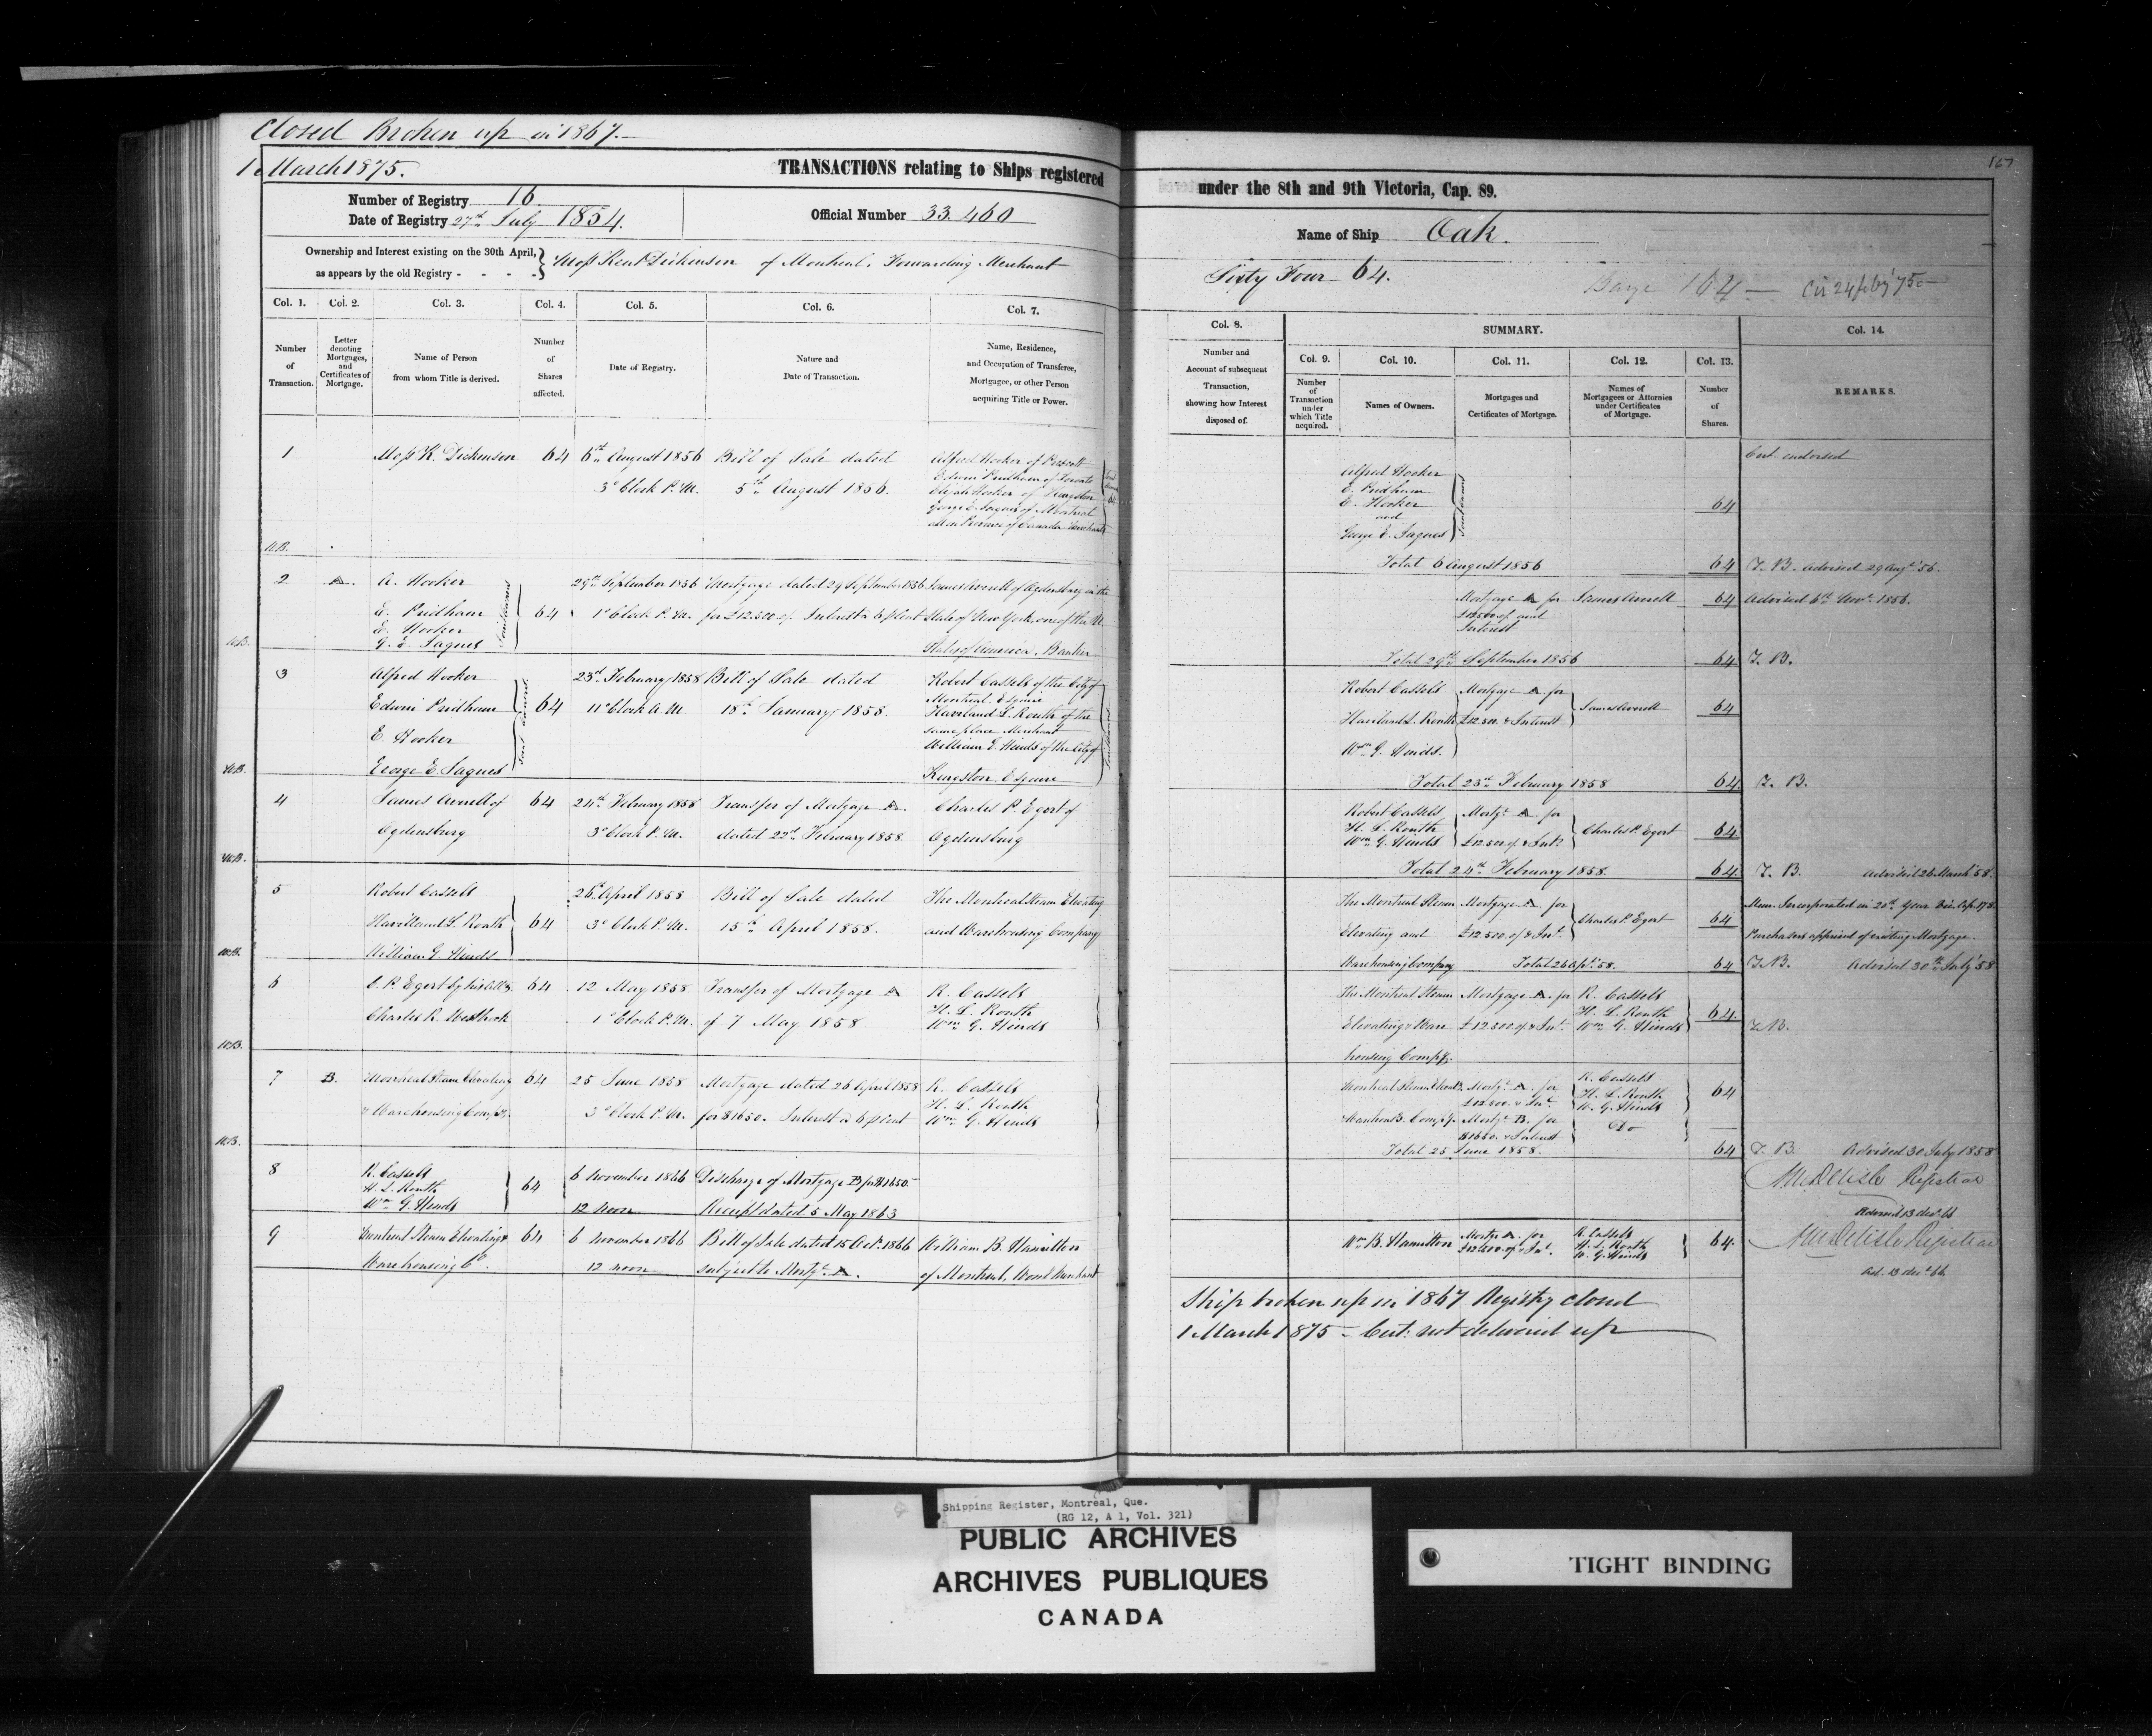 Closed Broken up in 1867.
1 March 1875.
TRANSACTIONS relating to Ships registered
Number of Registry 16
Date of Registry 27th July 1854.
Official Number 33.460
Ownership and Interest existing on the 30th April,
as appears by the old Registry - - - -
Moss Kent Dickinson of Montreal, Forwarding Merchant
Col. 1. Col. 2. Col. 3. Col. 4. Col. 5. Col. 6. Col. 7.
Number of Transaction.
Letter denoting Mortgages, and Certificates of Mortgage.
Name of Person from whom Title is derived.
Number of Shares affected.
Date of Registry.
Nature and Date of Transaction.
Name, Residence, and Occupation of Transferee, Mortgagee, or other Person acquiring Title or Power.
1 Moss K. Dickinson 64 6th August 1856 Bill of Sale dated Alfred Hooker of Prescott
3 o'Clock P.M. 5th August 1856. Edwin Pridham of Toronto
Elijah Hooker of Kingston
George E. Jaques of Montreal
all in Province of Canada Merchants
2 A. A. Hooker 29th September 1856 Mortgage dated 29 September 1856 James Averell of Ogdensburg in the
E. Pridham 64 1 o'Clock P.M. for £12.500 of Interest a 6 p Cent State of New York, one of the
E. Hooker
G. E. Jaques States of America, Banker
3 Alfred Hooker 23rd February 1858 Bill of Sale dated Robert Cassels of the City of
Montreal, Esquire
Edwin Pridham 64 11 o'Clock A.M 18th January 1858. Haviland L. Routh of the
same place Merchant
E. Hooker William G. Hinds of the City of
George E. Jaques Kingston Esquire
4 James Averell of 64 24th February 1858 Transfer of Mortgage A. Charles P. Egert of
Ogdensburg 3 o'Clock P.M. dated 22nd February 1858. Ogdensburg
5 Robert Cassels 26th April 1858 Bill of Sale dated The Montreal Steam Elevating
Havilland L. Routh 64 3 o'Clock P.M. 15th April 1858. and Warehousing Company
William G Hinds
6 C. P. Egert by his Atty 64 12 May 1858 Transfer of Mortgage A R. Cassels
H. L. Routh
Charles R. Westbrook 1 o'Clock P.M. of 7 May 1858 Wm G. Hinds
7 B. Montreal Steam Elevating 64 25 June 1858 Mortgage dated 26 April 1858 R. Cassels
H. L. Routh
& Warehousing Compy. 3 o'Clock P.M. for $1650. Interest a 6 p Cent Wm G. Hinds
8 R. Cassels 6 November 1866 Discharge of Mortgage B for $1650.
H. L. Routh 64
Wm G. Hinds 12 noon Receipt dated 5 May 1863
9 Montreal Steam Elevating & 64 6 November 1866 Bill of Sale dated 15 Oct. 1866 William B. Hamilton
Warehousing Co. 12 noon subject to Mortge. A. of Montreal, Merchant
167
under the 8th and 9th Victoria, Cap. 89.
Name of Ship Oak.
Sixty Four 64.
Barge 104
Col. 8.
SUMMARY.
Col. 14.
Number and Account of subsequent Transaction, showing how Interest disposed of.
Col. 9. Col. 10. Col. 11. Col. 12. Col. 13.
Number of Transaction under which Title acquired.
Names of Owners.
Mortgages and Certificates of Mortgage.
Names of Mortgagees or Attornies under Certificates of Mortgage.
Number of Shares.
REMARKS.
Cert. endorsed
Alfred Hooker
E. Pridham
E. Hooker 64
and
George E. Jaques
Total 6 August 1856 64 T. B. advised 29 Augt. 56.
Mortgage A for James Averell 64 Advised 6th Novr. 1856.
£12500 of and
Interest
Total 29th September 1856 64 T. B.
Robert Cassels Mortgage A. for
Haviland L. Routh £12.500. & Interest James Averell 64
Wm G. Hinds.
Total 23rd February 1858 64 T. B.
Robert Cassels Mortge. A. for
H. L. Routh Charles P. Egert 64
Wm G. Hinds £12.500 of & Int.
Total 24th February 1858. 64 T. B. Advised 26 March 58.
The Montreal Steam Mortgage A. for Charles P. Egert 64
Elevating and £12.500. of & Int. Purchasers apprised of existing Mortgage.
Warehousing Company Total 26 Apl. 58. 64 T.B. Advised 30th July 58
The Montreal Steam Mortgage A. for R. Cassels
H. L. Routh 64
Elevating & Ware £12.500 of & Int. Wm G. Hinds T.B.
housing Compy.
Mortge. A. for R. Cassels
£12.500. & Int. H. L. Routh 64
W. G. Hinds
Mortge. B. for Do
$1650. & Interest
Total 25 June 1858. 64 T. B. Advised 30 July 1858
MM Delisle Registrar
Advised 13 decr 66
Wm B. Hamilton Mortge A. for R. Cassels 64.
£12.500 of & Int. H. L. Routh
W. G. Hinds
MM Delisle Registrar
Ad. 13 decr 66.
Ship broken up in 1867 Registry closed
1 March 1875 - Cert: not delivered up
Shipping Register, Montreal, Que.
(RG 12, A 1, Vol. 321)
PUBLIC ARCHIVES
ARCHIVES PUBLIQUES
CANADA
TIGHT BINDING